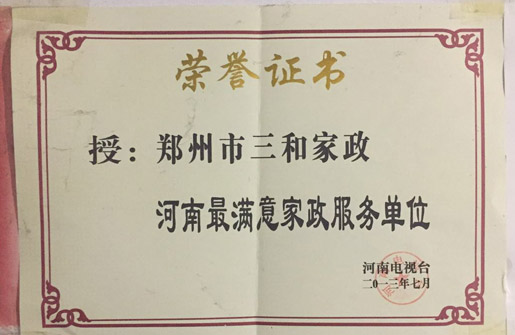 荣誉证书
授：郑州市三和家政
河南最满意家政服务单位
河南电视台
二〇一三年七月